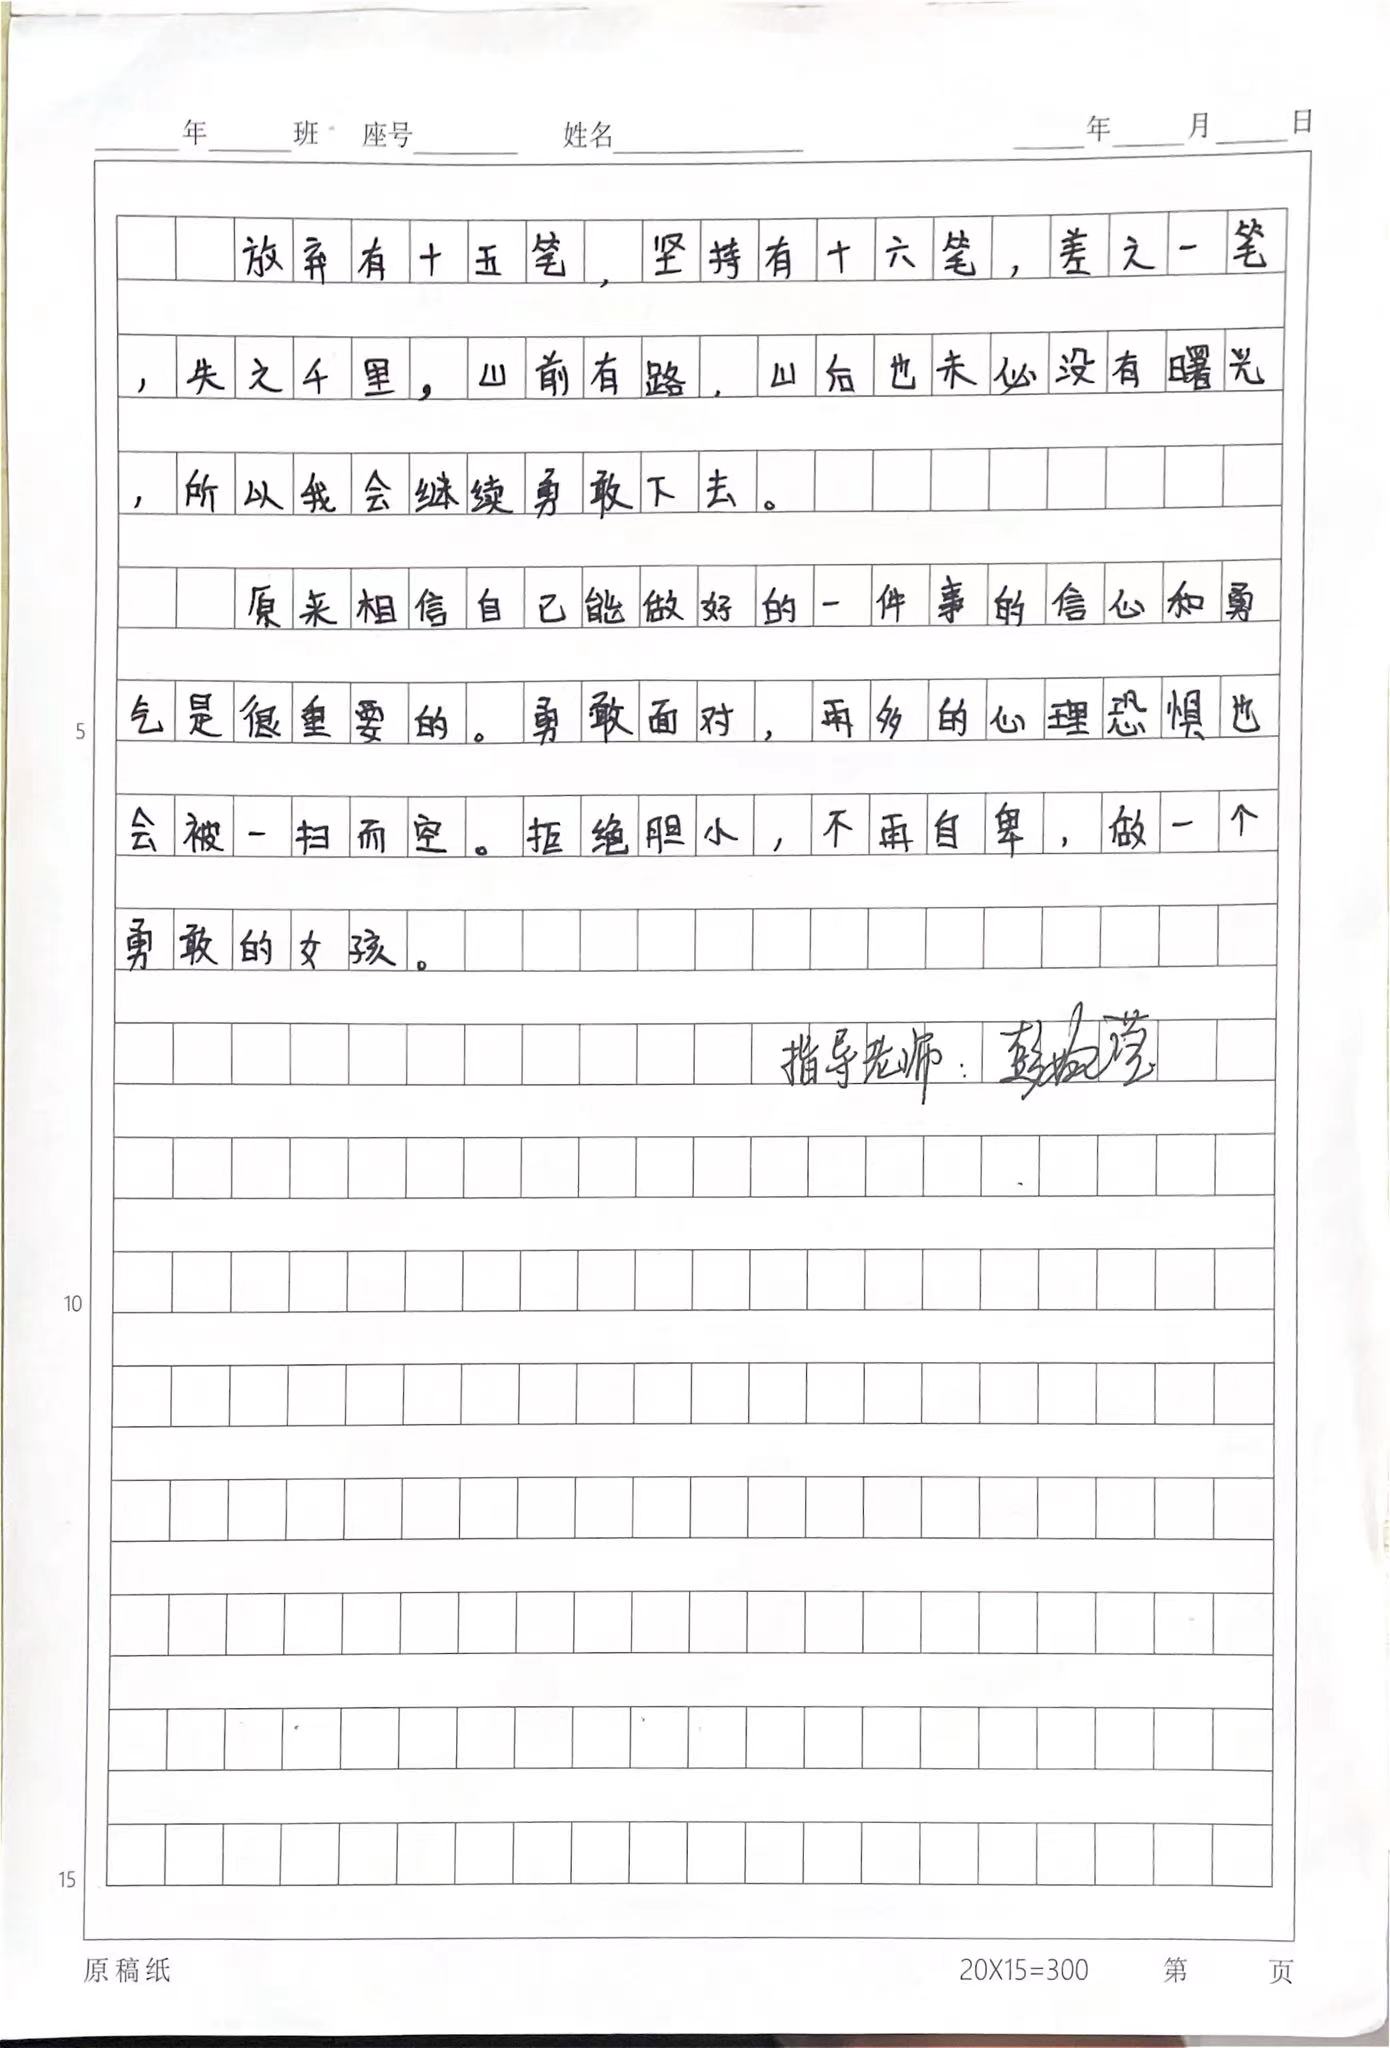 年 班 座号 姓名 年 月 日
放弃有十五笔,坚持有十六笔,差之一笔
,失之千里,山前有路,山后也未必没有曙光
,所以我会继续勇敢下去。
原来相信自己能做好的一件事的信心和勇
5 气是很重要的。勇敢面对,再多的心理恐惧也
会被一扫而空。拒绝胆小,不再自卑,做一个
勇敢的女孩。
指导老师:彭
10
15
原稿纸 20X15=300 第 页